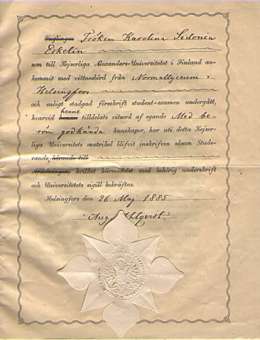 Ynglingen Fröken Karolina Sidonia
Eskelin
som till Kejserliga Alexanders-Universitetet i Finland an-
kommit med vittnesbörd från Normallyceum i
Helsingfors
och enligt stadgad föreskrift student-examen undergått,
hvarvid henne honom tilldelats vitsord af egande Med be-
röm godkända kunskaper, har uti detta Kejser-
liga Universitets matrikel blifvit inskrifven såsom Stude-
rande, hörande till
Afdelningen, hvilket härmedelst med behörig underskrift
och Universitetets sigill bekräftas.
Helsingfors den 26 Maj 1885
Aug. Ahlqvist.